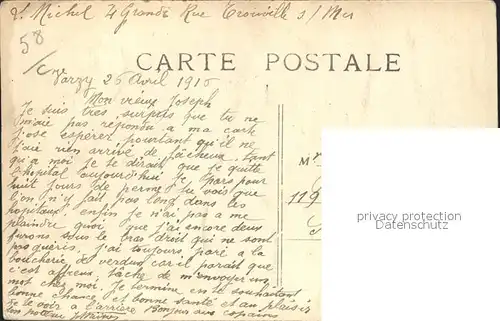 St Michel 4 Grande Rue Trouville s/ Mer
58
CARTE POSTALE
Varzy 26 Avril 1916
Mon vieux Joseph
Je suis très surpris que tu ne
m'aie pas répondu a ma carte
J'ose espérer pourtant qu'il ne
t'aie rien arrivé de fâcheux. tant
qu'a moi je te dirait que je quitte
l'hopital aujourd'hui je pars pour
huit jours de perme tu vois que
l'on n'y fait pas long dans les
hopitaux, enfin je n'ai pas a me
plaindre quoi que j'ai encore deux
furons sous le bras droit qui ne sont
pas guéris. j'ai toujours paré a la
boucherie de verdun car il parait que
c'est affreux, tache de m'envoyer un
mot chez moi. Je termine en te souhaitant
bonne chance et bonne santé et au plaisir
de te voir a l'arrière Bonjour aux copains
ton poteau
Mr
119
privacy protection
Datenschutz